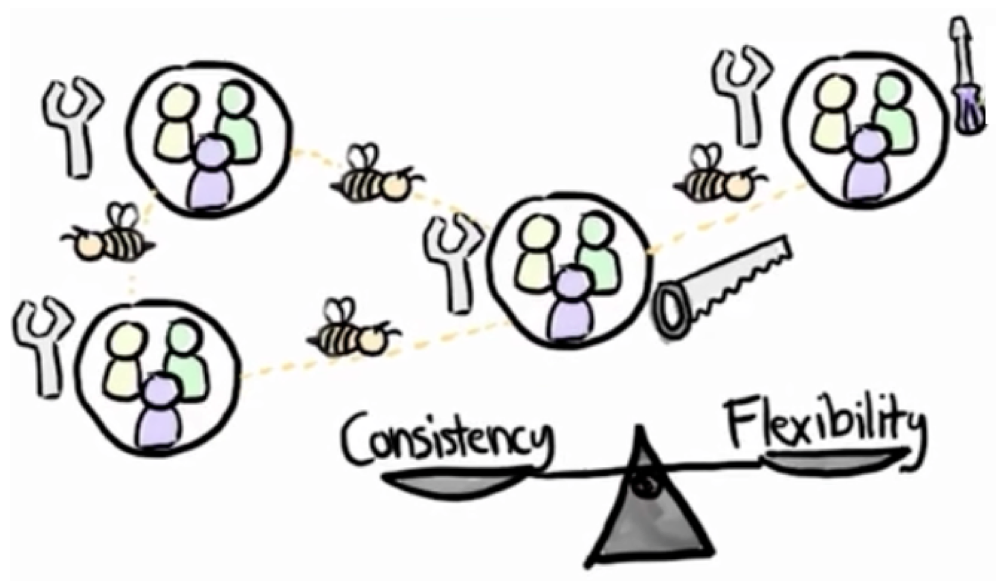 Consistency
Flexibility